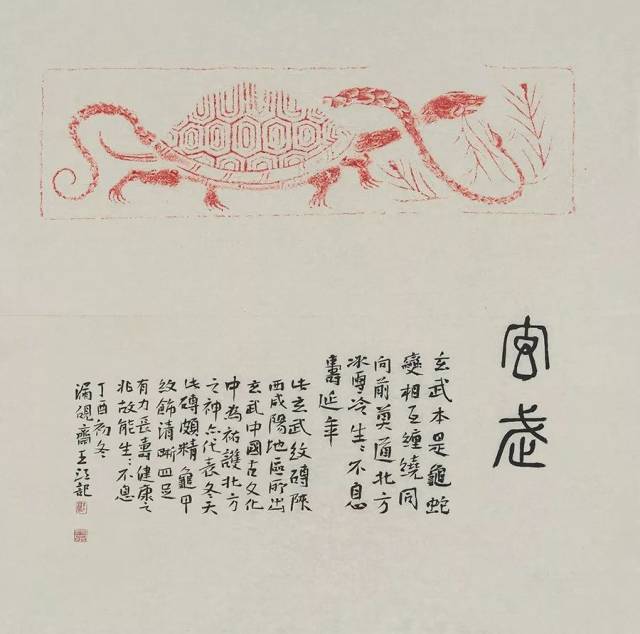 武
玄武本是龜蛇
變相互纏繞同
向前莫道北方
冰雪冷生〻不息
壽延年
此玄武紋磚陝
西咸陽地區所出
玄武中國古文化
中為祐護北方
之神亦代表冬天
此磚頗精龜甲
紋飾清晰四足
有力長壽健康之
兆故能生〻不息
丁酉初冬
漏硯齋王江記